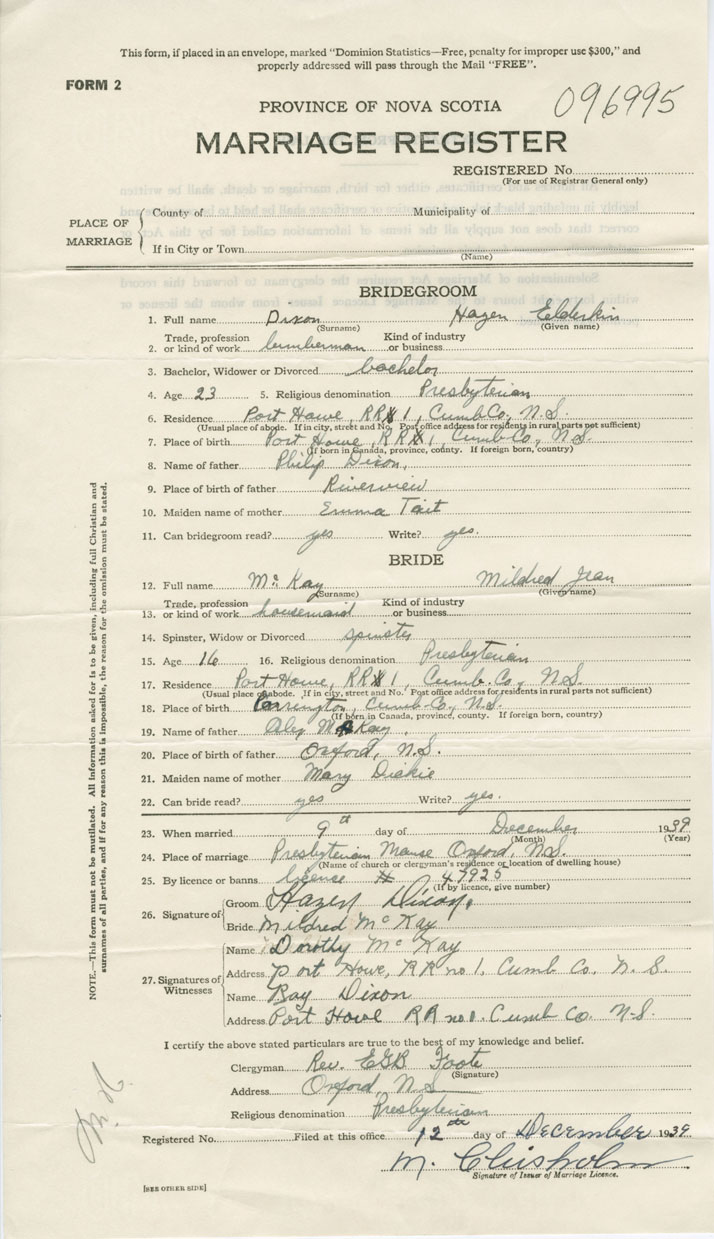 This form, if placed in an envelope, marked "Dominion Statistics—Free, penalty for improper use $300," and
properly addressed will pass through the Mail "FREE".
FORM 2
096995
PROVINCE OF NOVA SCOTIA
MARRIAGE REGISTER
REGISTERED No.
(For use of Registrar General only)
PLACE OF MARRIAGE
County of Municipality of
If in City or Town
(Name)
BRIDEGROOM
1. Full name Dixon Hazen Elderkin
(Surname) (Given name)
2. Trade, profession or kind of work lumberman Kind of industry or business
3. Bachelor, Widower or Divorced bachelor
4. Age 23 5. Religious denomination Presbyterian
6. Residence Port Howe, RR# 1, Cumb. Co., N.S.
(Usual place of abode. If in city, street and No. Post office address for residents in rural parts not sufficient)
7. Place of birth Port Howe, RR# 1, Cumb. Co., N.S.
(If born in Canada, province, county. If foreign born, country)
8. Name of father Philip Dixon,
9. Place of birth of father Riverview
10. Maiden name of mother Emma Tait
11. Can bridegroom read? yes Write? yes.
BRIDE
12. Full name McKay Mildred Jean
(Surname) (Given name)
13. Trade, profession or kind of work housemaid Kind of industry or business
14. Spinster, Widow or Divorced spinster
15. Age 16 16. Religious denomination Presbyterian
17. Residence Port Howe, RR# 1, Cumb. Co., N.S.
(Usual place of abode. If in city, street and No. Post office address for residents in rural parts not sufficient)
18. Place of birth Carrington, Cumb. Co., N.S.
(If born in Canada, province, county. If foreign born, country)
19. Name of father Alex McKay,
20. Place of birth of father Oxford, N.S.
21. Maiden name of mother Mary Dickie
22. Can bride read? yes Write? yes.
23. When married 9th day of December 1939
(Month) (Year)
24. Place of marriage Presbyterian Manse Oxford, N.S.
(Name of church or clergyman's residence or location of dwelling house)
25. By licence or banns licence # 47925
(If by licence, give number)
26. Signature of Groom Hazen Dixon.
Bride Mildred McKay
27. Signatures of Witnesses
Name Dorothy McKay
Address Port Howe, RR no 1. Cumb Co. N.S.
Name Ray Dixon
Address Port Howe RR no 1. Cumb Co. N.S.
I certify the above stated particulars are true to the best of my knowledge and belief.
Clergyman Rev. EGB Foote
(Signature)
Address Oxford, N.S.
Religious denomination Presbyterian
Registered No. Filed at this office 12th day of December 1939
M. Chisholm
Signature of Issuer of Marriage Licence.
[SEE OTHER SIDE]
NOTE.—This form must not be mutilated. All information asked for is to be given, including full Christian and
surnames of all parties, and if for any reason this is impossible, the reason for the omission must be stated.